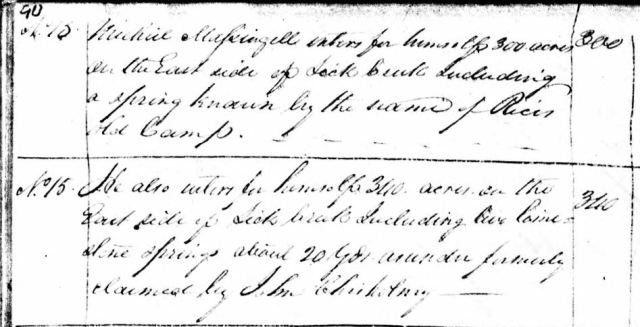 90
No 15 Michiel Massingell enters for himself 300 acres 300
on the East side of Lick Creek Including
a spring known by the name of Rices
old Camp.
No 15. He also enters for himself 340 acres on the 340
East side of Lick Creek Including two Lime-
stone springs about 20 Yds assunder formerly
claimed by John Chisholm